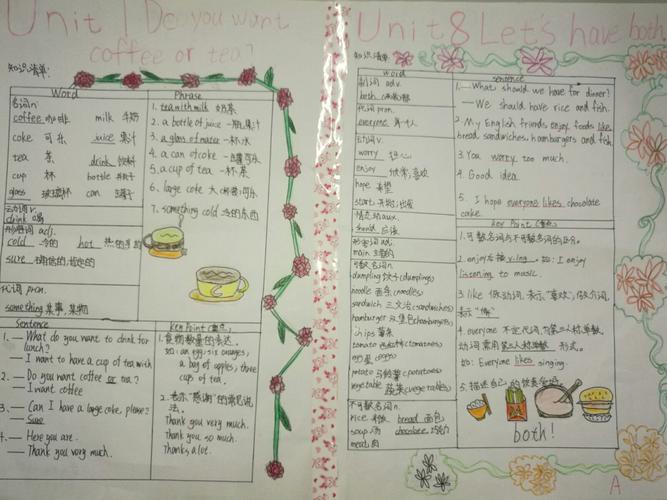 Unit 1 Do you want
coffee or tea?
知识清单:
Word
名词n
coffee 咖啡 milk 牛奶
coke 可乐 juice 果汁
tea 茶 drink 饮料
cup 杯 bottle 瓶子
glass 玻璃杯 can 罐子
动词 v.
drink 喝
形容词 adj.
cold 冷的 hot 热的
sure 确信的,肯定的
代词 pron.
something 某事,某物
Phrase
1. tea with milk 奶茶
2. a bottle of juice 一瓶果汁
3. a glass of water 一杯水
4. a can of coke 一罐可乐
5. a cup of tea 一杯茶
6. large coke 大 可乐
7. something cold 冷的东西
Sentence
1. — What do you want to drink for
lunch?
— I want to have a cup of tea with
2. — Do you want coffee or tea?
— I want coffee
3. — Can I have a large coke, please?
— Sure
4. — Here you are.
— Thank you very much.
Key Point (重点)
1. 食物数量的表达.
如: an egg; six oranges;
a bag of apples; three
cups of tea.
2. 表示"感谢"的常见说
法.
Thank you very much.
Thank you so much.
Thanks a lot.
Unit 8 Let's have both
知识清单:
word
副词 adv.
both
代词 pron.
everyone 每个人
动词 v.
worry 担心
enjoy 欣赏;喜欢
hope 希望
start 开始;出发
情态动aux.
should 应该
形容词 adj.
main 主要的
可数名词n
dumpling 饺子(dumplings)
noodle 面条(noodles)
sandwich 三文治(sandwiches)
hamburger 汉堡包(hamburgers)
chips 薯条
tomato 西红柿(tomatoes)
egg 蛋(eggs)
potato 马铃薯(potatoes)
vegetable 蔬菜(vegetables)
不可数名词n.
rice 米饭 bread 面包
soup 汤 chocolate 巧克力
meat 肉
sentence
1. — What should we have for dinner?
— We should have rice and fish.
2. My English friends enjoy foods like
bread, sandwiches, hamburgers and fish.
3. You worry too much.
4. Good idea.
5. I hope everyone likes chocolate
cake.
Key Point (重点)
1. 可数名词与不可数名词的区分.
2. enjoy后接v-ing. 如: I enjoy
listening to music.
3. like 做动词,表示"喜欢",做介词,
表示"像"
4. everyone 不定代词,为第三人称单数
动词需用第三人称单数 形式.
如: Everyone likes singing.
5. 描述自己的饮食
both!
A